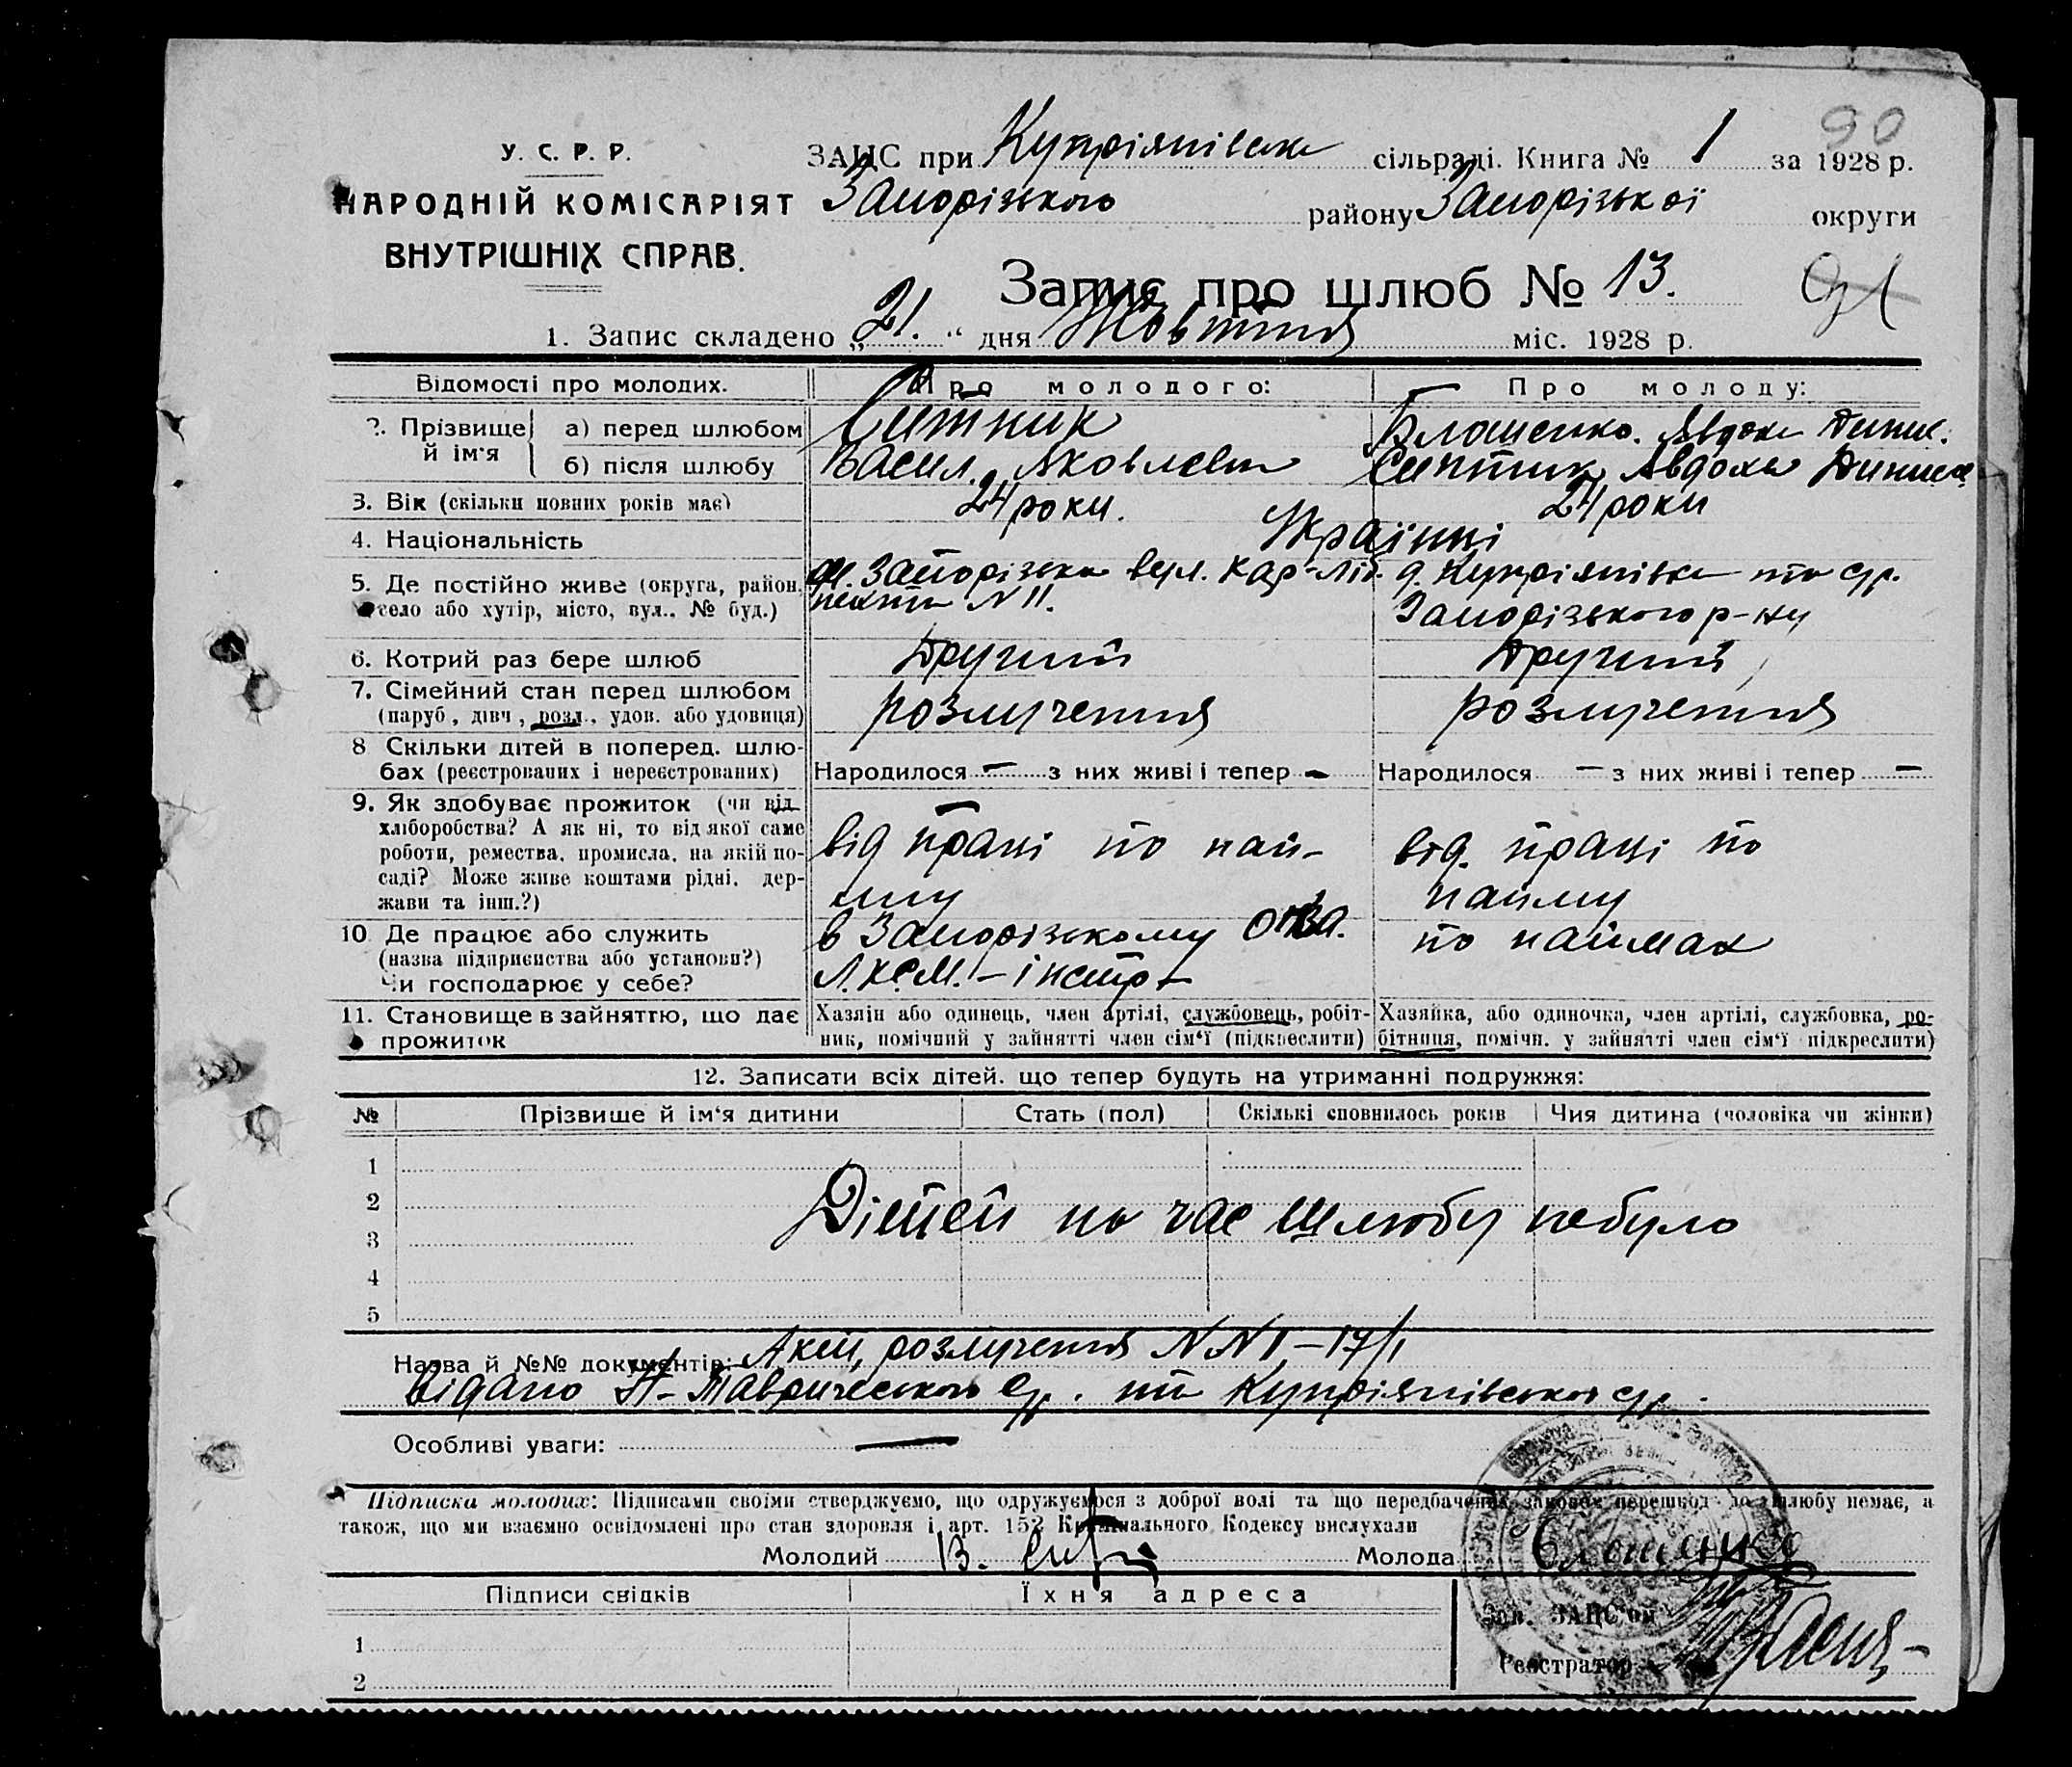 90
У. С. Р. Р.
НАРОДНІЙ КОМІСАРІЯТ
ВНУТРІШНІХ СПРАВ.
ЗАЦС при Купріянівськ сільраді. Книга № 1 за 1928 р.
Запорізького району Запорізької округи
Запис про шлюб № 13.
91
1. Запис складено „21.“ дня Жовтня міс. 1928 р.
Відомості про молодих. Про молодого: Про молоду:
2. Прізвище й ім'я а) перед шлюбом Ситник Блошенко. Авдокі Динис.
б) після шлюбу Васил. Яковлевич Ситник Авдокі Динис.
3. Вік (скільки повних років має) 24 роки. 24 роки
4. Національність Українці
5. Де постійно живе (округа, район, село або хутір, місто, вул., № буд.) м. Запоріжжа вул. Кар-Ліб. д. Купріянівка тіє ср.
нехта N 11. Запорізького р-ну
6. Котрий раз бере шлюб Другий Другий
7. Сімейний стан перед шлюбом розлучення розлучення
(паруб., дівч., розл., удов. або удовиця)
8 Скільки дітей в поперед. шлю-
бах (реєстрованих і нереєстрованих) Народилося — з них живі і тепер - Народилося — з них живі і тепер —
9. Як здобуває прожиток (чи від
хліборобства? А як ні, то від якої саме
роботи, ремества, промисла, на якій по- від праці по най- від. праці по
саді? Може живе коштами рідні, дер-
жави та інш.?) му найму
10 Де працює або служить в Запорізькому по наймах
(назва підприємства або установи?)
Чи господарює у себе? Л.К.С.М. - інстр-
11. Становище в зайняттю, що дає Хазяїн або одинець, член артілі, службовець, робіт- Хазяйка, або одиночка, член артілі, службовка, ро-
прожиток ник, помічний у зайнятті член сім'ї (підкреслити) бітниця, помічн. у зайнятті член сім'ї підкреслити)
12. Записати всіх дітей. що тепер будуть на утриманні подружжя:
№ Прізвище й ім'я дитини Стать (пол) Скількі сповнилось років Чия дитина (чоловіка чи жінки)
1
2 Дітей на час шлюбу небуло
3
4
5
Назва й №№ документів: Акти, розлучення NN 1-17/1
Відано Н-Таврического ср. та Купріянівського ср.
Особливі уваги: —
Підписка молодих: Підписами своїми стверджуємо, що одружуємося з доброї волі та що передбачених законом перешкод до шлюбу немає, а
також, що ми взаємно освідомлені про стан здоровля і арт. 152 Кримінального Кодексу вислухали
Молодий В. Ситн Молода Блошенко
Підписи свідків Їхня адреса
Зав. ЗАЦС'ом
1
Реєстратор
2